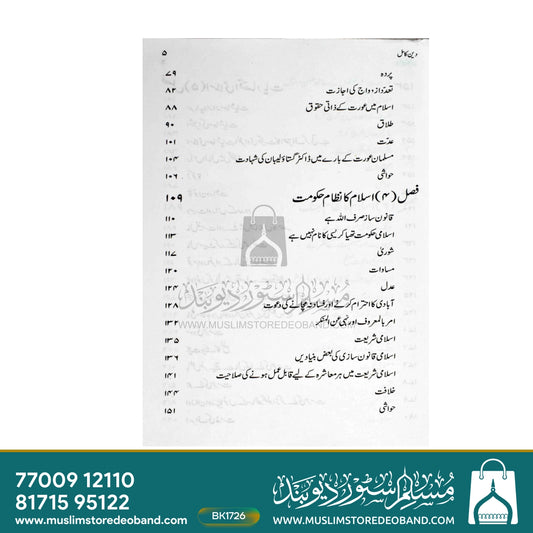 دین کامل ۵
پردہ ۷۹
تعدّد ازدواج کی اجازت ۸۲
اسلام میں عورت کے ذاتی حقوق ۸۸
طلاق ۹۰
عدّت ۱۰۱
مسلمان عورت کے بارے میں ڈاکٹر گستاؤلیبان کی شہادت ۱۰۴
حواشی ۱۰۶
فصل (۴) اسلام کا نظام حکومت ۱۰۹
قانون ساز صرف اللہ ہے ۱۱۰
اسلامی حکومت تھیاکریسی کا نام نہیں ہے ۱۱۳
شوریٰ ۱۱۷
مساوات ۱۲۰
عدل ۱۲۴
آبادی کا احترام کرنے اور فساد نہ مچانے کی دعوت ۱۲۸
مسلم اسٹور دیوبند
WWW.MUSLIMSTOREDEOBAND.COM
امر بالمعروف اور نہی عن المنکر ۱۳۲
اسلامی شریعت ۱۳۵
اسلامی قانون سازی کی بعض بنیادیں ۱۳۶
اسلامی شریعت میں ہر معاشرہ کے لیے قابل عمل ہونے کی صلاحیت ۱۴۱
خلافت ۱۴۴
حواشی ۱۵۱
77009 12110
81715 95122
www.muslimstoredeoband.com
BK1726
مسلم اسٹور دیوبند
WWW.MUSLIMSTOREDEOBAND.COM